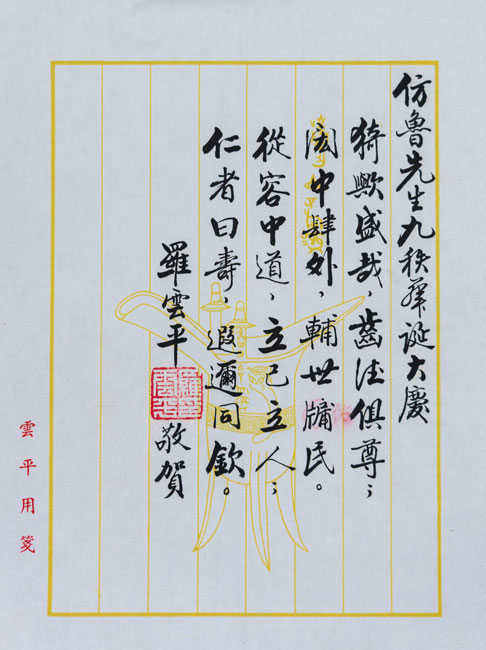 仿魯先生九秩華誕大慶
猗歟盛哉，齒德俱尊；
閎中肆外，輔世牖民。
從容中道，立己立人；
仁者曰壽，遐邇同欽。
羅雲平 敬賀
雲平用箋